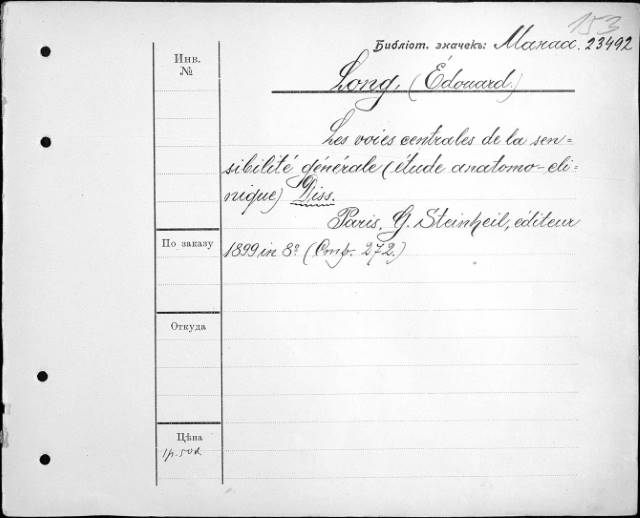 153
Библіот. значекъ: Магаз. 23492
Инв.
№
Long, (Édouard.)
Les voies centrales de la sen=
sibilité générale (étude anatomo-cli=
nique) Diss.
Paris, G. Steinheil, éditeur
По заказу
1899 in 8º (Стр. 272.)
Откуда
Цѣна
1р. 50к